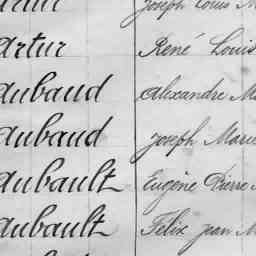 Joseph Louis M
Artur René Louis
Aubaud Alexandre Ma
Aubaud Joseph Marie
Aubault Eugène Pierre
Aubault Félix Jean M